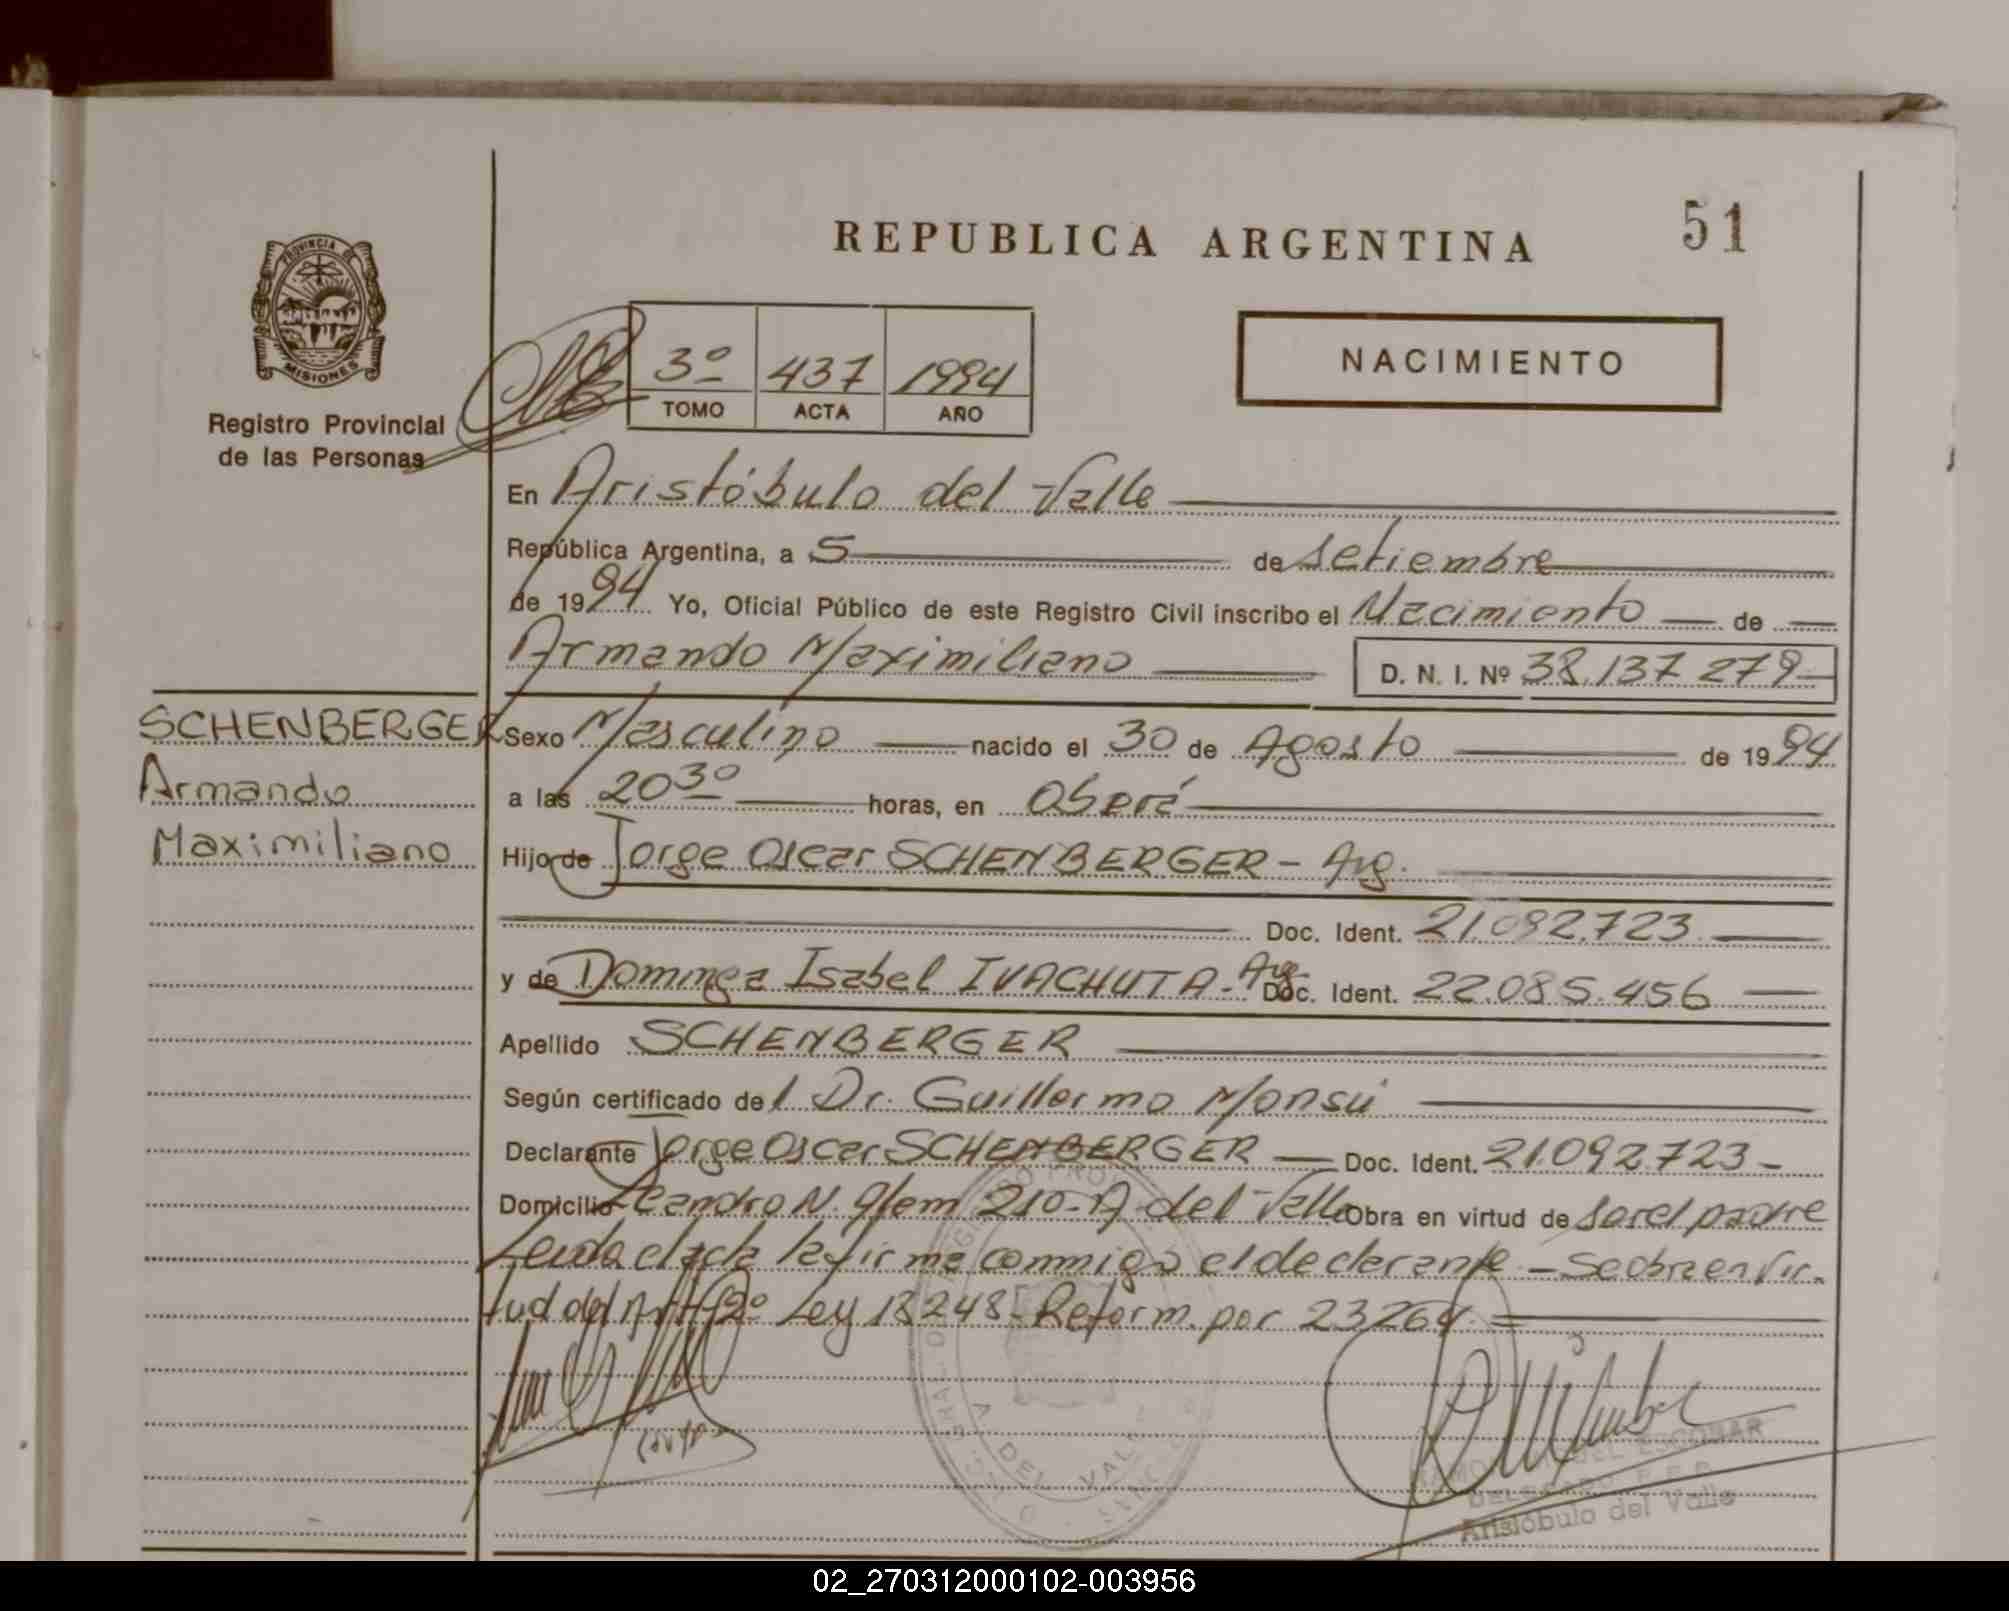 REPUBLICA ARGENTINA
51
PROVINCIA DE
MISIONES
Registro Provincial
de las Personas
3º 437 1994
TOMO ACTA AÑO
NACIMIENTO
En Aristóbulo del Valle
República Argentina, a 5 de Setiembre
de 1994 Yo, Oficial Público de este Registro Civil inscribo el Nacimiento de
Armando Maximiliano D. N. I. Nº 38.137.279
SCHENBERGER
Armando
Maximiliano
Sexo Masculino nacido el 30 de Agosto de 1994
a las 20³⁰ horas, en Oberá
Hijo de Jorge Oscar SCHENBERGER - Arg.
Doc. Ident. 21.092.723
y de Dominga Isabel IVACHUTA - Arg. Doc. Ident. 22.085.456
Apellido SCHENBERGER
Según certificado del Dr. Guillermo Monsú
Declarante Jorge Oscar SCHENBERGER Doc. Ident. 21.092.723
Domicilio Leandro N. Alem 210 - A. del Valle Obra en virtud de ser el padre
Leida el acta la firma conmigo el declarante - Se obra en vir-
tud del Art 2º Ley 18248 - Reform. por 23264.
A DEL VALLE
ESCOBAR
Aristóbulo del Valle
02_270312000102-003956